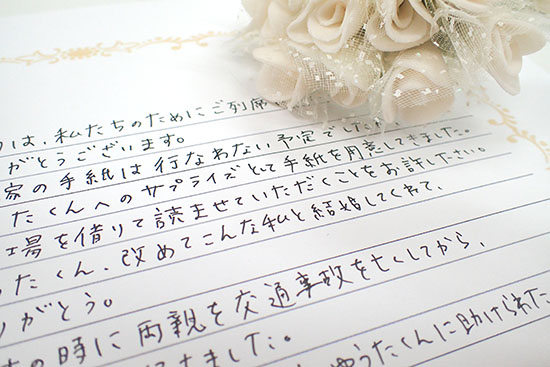 は、私たちのためにご列席
がとうございます。
家の手紙は行なわない予定でしたが、
たくんへのサプライズとして手紙を用意してきました。
場を借りて読ませていただくことをお許しください。
うたくん、改めてこんな私と結婚してくれて、
がとう。
の時に両親を交通事故で亡くしてから、
きました。
ゆうたくんに助けられた